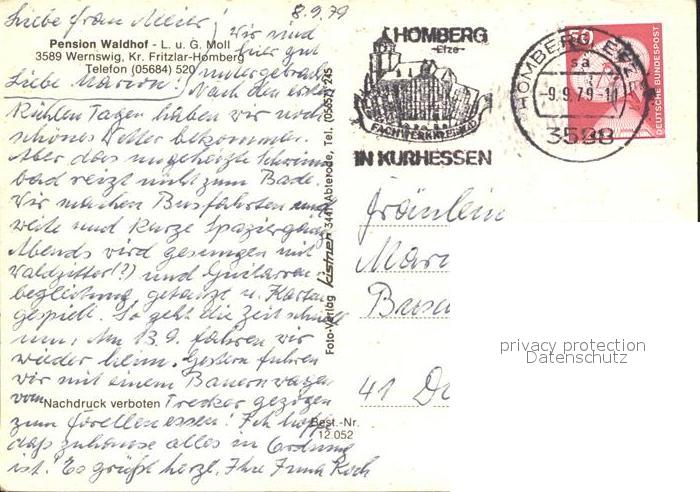 8.9.79
Liebe Frau Meier!
Wir sind
hier gut
Pension Waldhof - L. u. G. Moll
3589 Wernswig, Kr. Fritzlar-Homberg
Telefon (05684) 520
untergebracht
Liebe Marion! Nach den ersten
kühlen Tagen haben wir noch
schönes Wetter bekommen.
Aber das ungeheizte Schwimm
bad reizt nicht zum Bade.
Wir machen Busfahrten und
weite und kurze Spaziergänge
Abends wird gesungen mit
Waldzitter(?) und Guitarren
begleitung, getanzt u. Karten
gespielt. So geht die Zeit schnell
um, Am 13.9. fahren wir
wieder heim. Gestern fuhren
wir mit einem Bauernwagen
vom Trecker gezogen
Nachdruck verboten
zum Forellenessen! Ich hoffe
daß zuhause alles in Ordnung
ist! Es grüßt herzl. Ihre Irma Koch
Best.-Nr.
12.052
Foto-Verlag Kistner 3441 Abterode, Tel. (05657) 245
HOMBERG
-Efze-
FACHWERKKLEINOD
IN KURHESSEN
HOMBERG, EFZE
sa
-9.9.79-10
3588
50
DEUTSCHE BUNDESPOST
Fräulein
41
privacy protection
Datenschutz